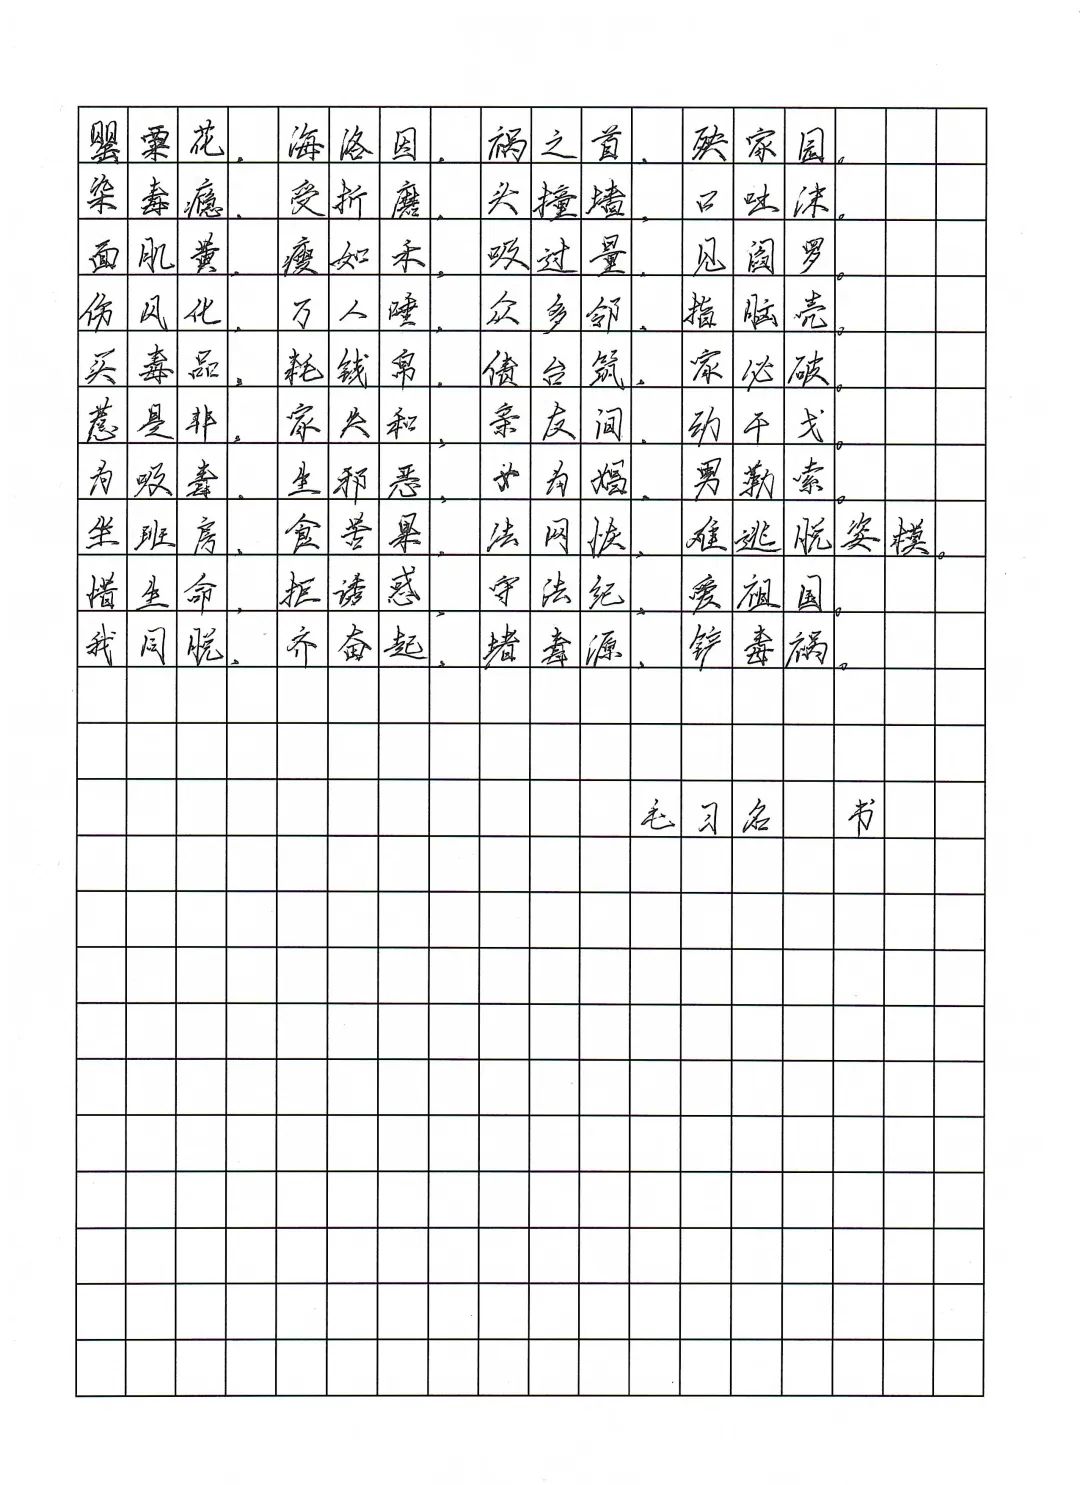 罂粟花，海洛因，祸之首，殃家园。
染毒瘾，受折磨，头撞墙，口吐沫。
面肌黄，瘦如禾，吸过量，见阎罗。
伤风化，万人唾，众乡邻，指脑壳。
买毒品，耗钱帛，债台筑，家必破。
惹是非，家失和，亲友间，动干戈。
为吸毒，生邪恶，女为娼，男勒索。
坐班房，食苦果，法网恢，难逃脱
惜生命，拒诱惑，守法纪，爱祖国。
我同胞，齐奋起，堵毒源，铲毒祸。
毛习名 书